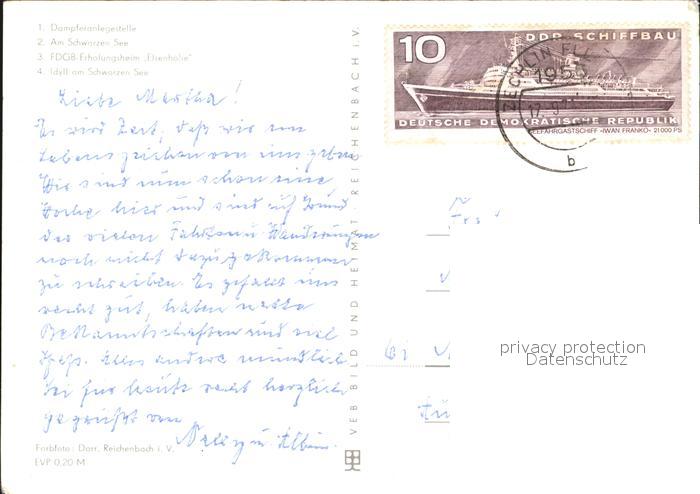 1. Dampferanlegestelle
2. Am Schwarzen See
3. FDGB-Erholungsheim „Elsenhöhe"
4. Idyll am Schwarzen See
Liebe Martha!
Es wird Zeit, daß wir ein
Lebenszeichen von uns geben.
Wir sind nun schon eine
Woche hier und sind auf Grund
der vielen Fahrten u. Wanderungen
noch nicht dazu gekommen
zu schreiben. Es gefällt uns
recht gut, haben nette
Bekanntschaften und viel
Spaß. Alles andere mündlich.
Sei für heute recht herzlich
gegrüßt von
u. Albin.
Farbfoto: Darr, Reichenbach i. V.
EVP 0,20 M
VEB BILD UND HEIMAT REICHENBACH i.V.
10
DDR SCHIFFBAU
DEUTSCHE DEMOKRATISCHE REPUBLIK
SEEFAHRGASTSCHIFF »IWAN FRANKO« 21000 PS
ZECHLIN
b
privacy protection
Datenschutz